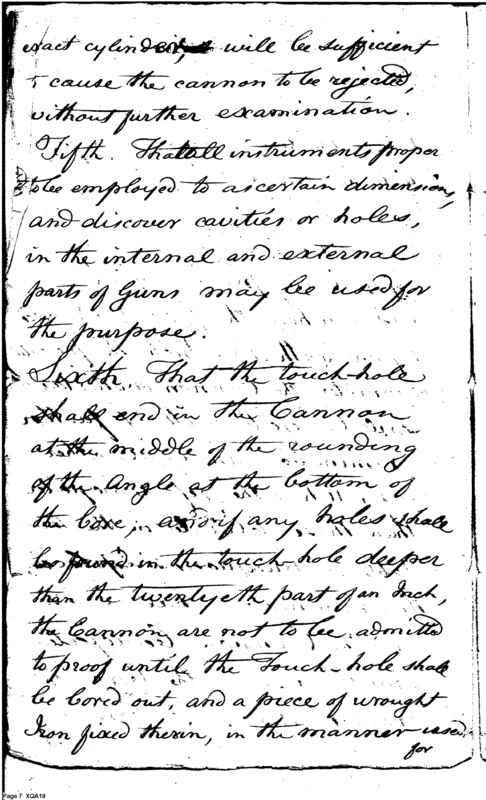 exact cylinder, will be sufficient
to cause the cannon to be rejected,
without further examination.
Fifth. That all instruments proper
to be employed to ascertain dimensions,
and discover cavities or holes,
in the internal and external
parts of Guns may be used for
the purpose.
Sixth. That the touch-hole
shall end in the Cannon
at the middle of the rounding
of the Angle at the bottom of
the bore, and if any holes shall
be found in the touch-hole deeper
than the twentyeth part of an Inch,
the Cannon are not to be admitted
to proof until the Touch-hole shall
be bored out, and a piece of wrought
Iron fixed therin, in the manner used
for
Page 7 XQA18